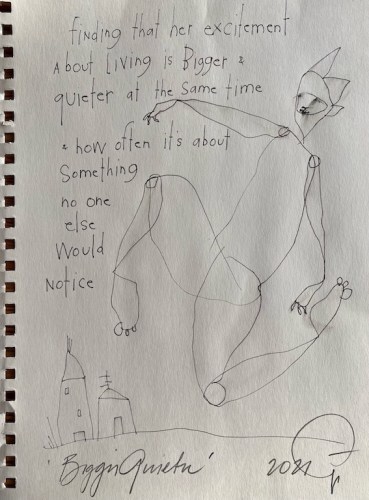 finding that her excitement
About Living is Bigger &
quieter at the same time
& how often it's about
Something
no one
else
Would
Notice
'Bigger Quieter'
2021